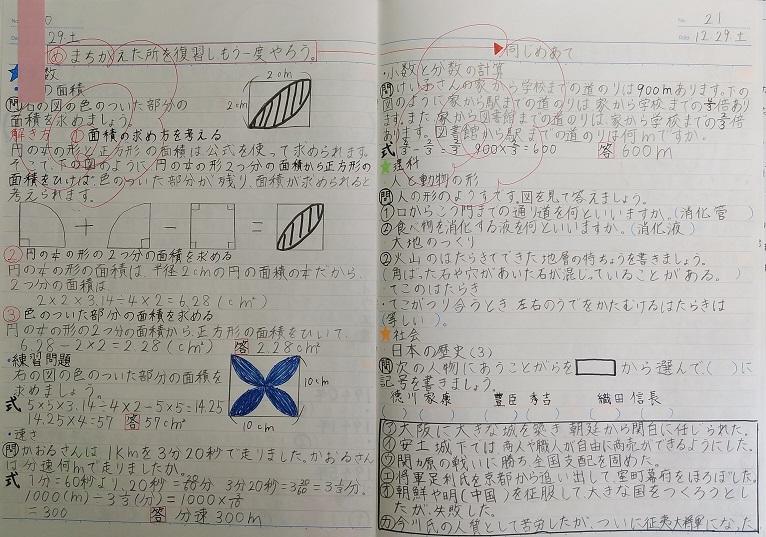 29.土
め まちがえた所を復習しもう一度やろう。
★算数
・の面積
問 右の図の色のついた部分の
面積を求めましょう。
2cm
2cm
解き方 ① 面積の求め方を考える
円の¼の形と正方形の面積は公式を使って求められます。
そこで、下の図のように円の¼の形2つ分の面積から正方形の
面積をひけば、色のついた部分が残り、面積が求められると
考えられます。
+ − =
② 円の¼の形の2つ分の面積を求める
円の¼の形の面積は、半径2cmの円の面積の¼だから、
2つ分の面積は
2×2×3.14÷4×2=6.28(cm²)
③ 色のついた部分の面積を求める
円の¼の形の2つ分の面積から、正方形の面積をひいて、
6.28−2×2=2.28(cm²) 答 2.28cm²
・練習問題
右の図の色のついた部分の面積を
求めましょう。
式 5×5×3.14÷4×2−5×5=14.25
14.25×4=57 答 57cm²
10cm
10cm
・速さ
問 かおるさんは1Kmを3分20秒で走りました。かおるさん
は分速何mで走りましたか。
式 1分=60秒より、20秒=20/60分 3分20秒=3 20/60=3⅓分。
1000(m)÷3⅓(分)=1000×3/10
=300 答 分速300m
No. 21
Date 12.29.土
▶同じめあて
・小数と分数の計算
問 けいおさんの家から学校までの道のりは900mあります。下の
図のように家から駅までの道のりは、家から学校までの倍あり
ます。また家から図書館までの道のりは、家から学校までの倍
あります。図書館から駅までの道のりは何mですか。
900×⅔=600 答 600m
★理科
人と動物の形
問 人の形のようすです。図を見て答えましょう。
①口からこう門までの通り道を何といいますか。(消化管)
②食べ物を消化する液を何といいますか。(消化液)
大地のつくり
②火山のはたらきでできた地層の特ちょうを書きましょう。
(角ばった石や穴があいた石が混じっていることがある。)
てこのはたらき
・てこがつり合うとき左右のうでをかたむけるはたらきは
(等しい)。
★社会
日本の歴史(3)
問 次の人物にあうことがらを から選んで( )に
記号を書きましょう。
徳川家康 豊臣秀吉 織田信長
( )( ) ( )( ) ( )( )
ア 大阪に大きな城を築き朝廷から関白に任じられた。
イ 安土城下では、商人や職人が自由に商売ができるようにした。
ウ 関ヶ原の戦いに勝ち、全国支配を固めた。
エ 将軍足利氏を京都から追い出して、室町幕府をほろぼした。
オ 朝鮮や明(中国)を征服して、大きな国をつくろうとし
たが、失敗した。
カ 今川氏の人質として苦労したが、ついに征夷大将軍になった